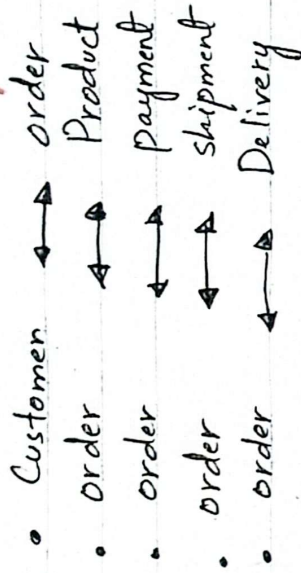 • Customer ↔ order
• order ↔ Product
• order ↔ Payment
• order ↔ shipment
• order ↔ Delivery